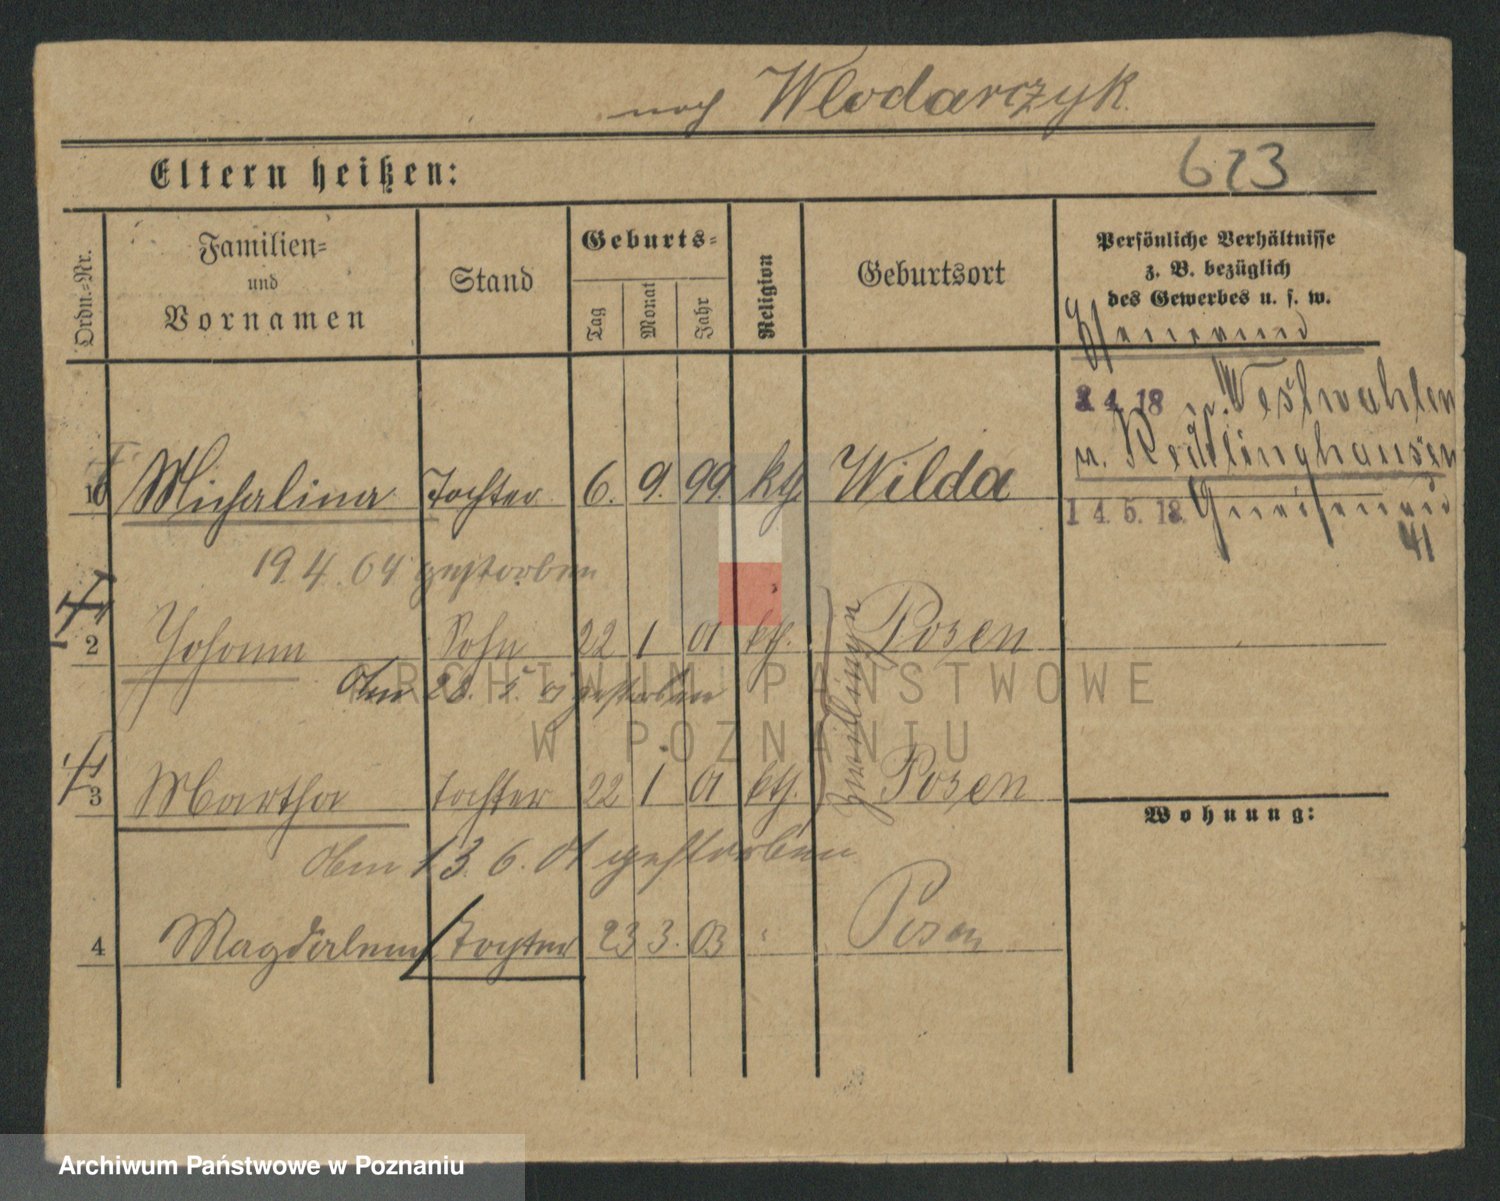 noch Wlodarczyk
Eltern heißen:
623
Ordn.-Nr.
Familien-
und
Vornamen
Stand
Geburts-
Tag
Monat
Jahr
Religion
Geburtsort
Persönliche Verhältnisse
z. B. bezüglich
des Gewerbes u. s. w.
2 4. 18 Westwahlen
n. Recklinghausen
10 Michalina Tochter 6. 9. 99. kth Wilda
14. 5. 18. Gneisenau
41
19. 4. 04 gestorben
2 Johann Sohn 22 1 01 kth. Posen
Zwillinge
Am 28. 5. 01 gestorben
3 Martha Tochter 22 1 01 kth. Posen
Wohnung:
Am 13. 6. 01 gestorben
4 Magdalena Tochter 23 3. 03 " Posen
ARCHIWUM PAŃSTWOWE
W POZNANIU
Archiwum Państwowe w Poznaniu